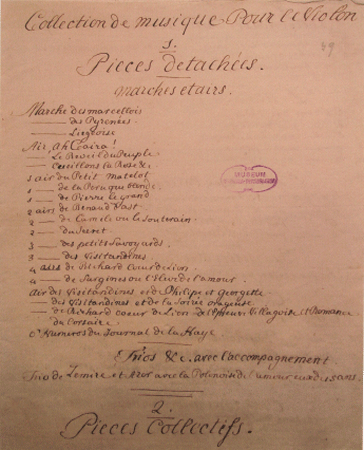 Collection de musique Pour le Violon
1.
Pieces detachées.
Marches et airs.
Marche des marcellois
— des Pyrenées
— Liegeoise
Air, Ah! Caira!
— Le Reveil du Peuple
— Cueillons la Rose &c
1 air du Petit matelot
1 — de la Peruque blonde
1 — de Pierre le grand
2 airs de Renaud d'ast
2 — de Camile ou le Souterain
2 — du Secret
3 — des petits Savoyards
3 — des Visitandines
4 airs de Richard Coeurdelion
4 — de Sargines ou l'Eleve de l'amour
Air des Visitandines et de Philipe et georgette
— des Visitandines et de la Soirée orageuse
— de Richard coeur de Lion, de Villageoise et Romance
du Corsaire
Numeros du Journal de la Haye
Trios &c. avec l'accompagnement
Trio de Zemire et Azor avec la Polonoise de l'amour
2.
Pieces Collectifs.